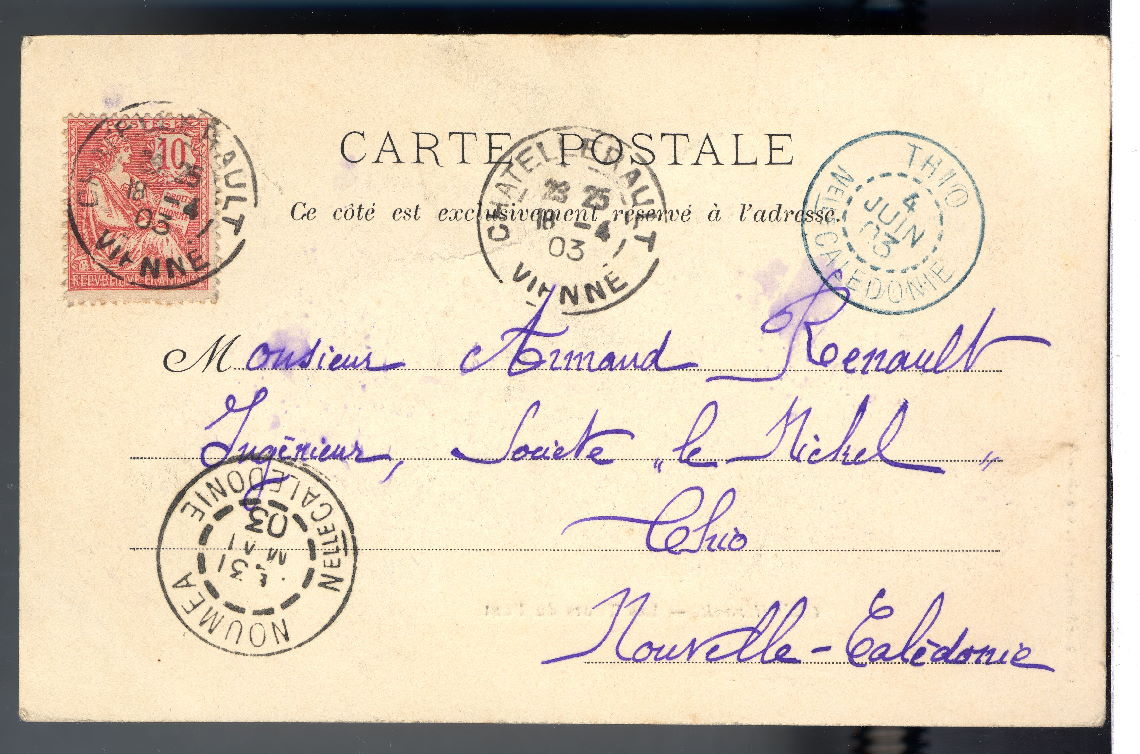 10
REPVBLIQVE FRANCAISE
CHATELLERAULT
25
18 -4
03
VIENNE
CARTE POSTALE
CHATELLERAULT
25
18 -4
03
VIENNE
THIO
4
JUIN
03
NELLE CALEDONIE
Ce côté est exclusivement réservé à l'adresse.
Monsieur Armaud Renault
Ingénieur, Societe "le Nickel"
Thio
Nouvelle-Calédonie
NELLE CALEDONIE
31
MAI
03
NOUMEA